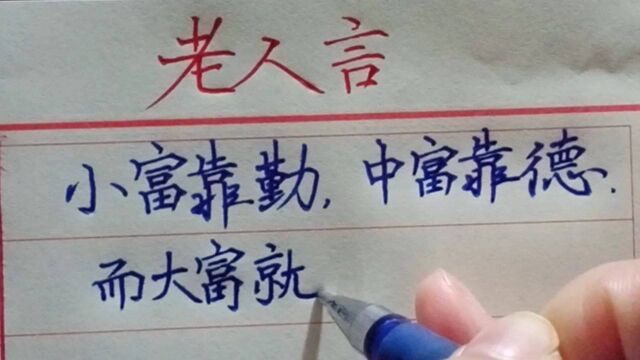 老人言
小富靠勤,中富靠德.
而大富就